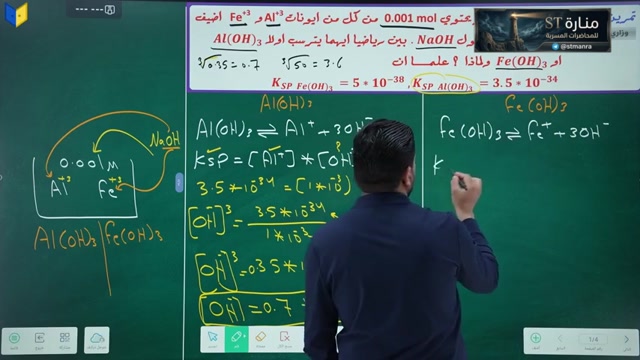 يحتوي 0.001 mol من كل من ايونات Al+3 و Fe+3 اضيف
NaOH. بين رياضيا ايهما يترسب اولا Al(OH)3
او Fe(OH)3 ولماذا ؟ علما ان ∛0.35=0.7 ∛50=3.6
KSP Fe(OH)3 = 5 * 10-38, KSP Al(OH)3 = 3.5 * 10-34
منارة ST
للمحاضرات المسربة
@stmanra
NaOH
0.001M
Al+3 Fe+3
Al(OH)3 Fe(OH)3
Al(OH)3
Al(OH)3 ⇌ Al+ + 3OH-
KSP = [Al+] * [OH
3.5*10-34 = [1*10-3)
[OH]3 = 3.5*10-34 / 1*10-3
[OH]3 = 0.35*10
[OH] = 0.7
Fe(OH)3
Fe(OH)3 ⇌ Fe+ + 3OH-
K